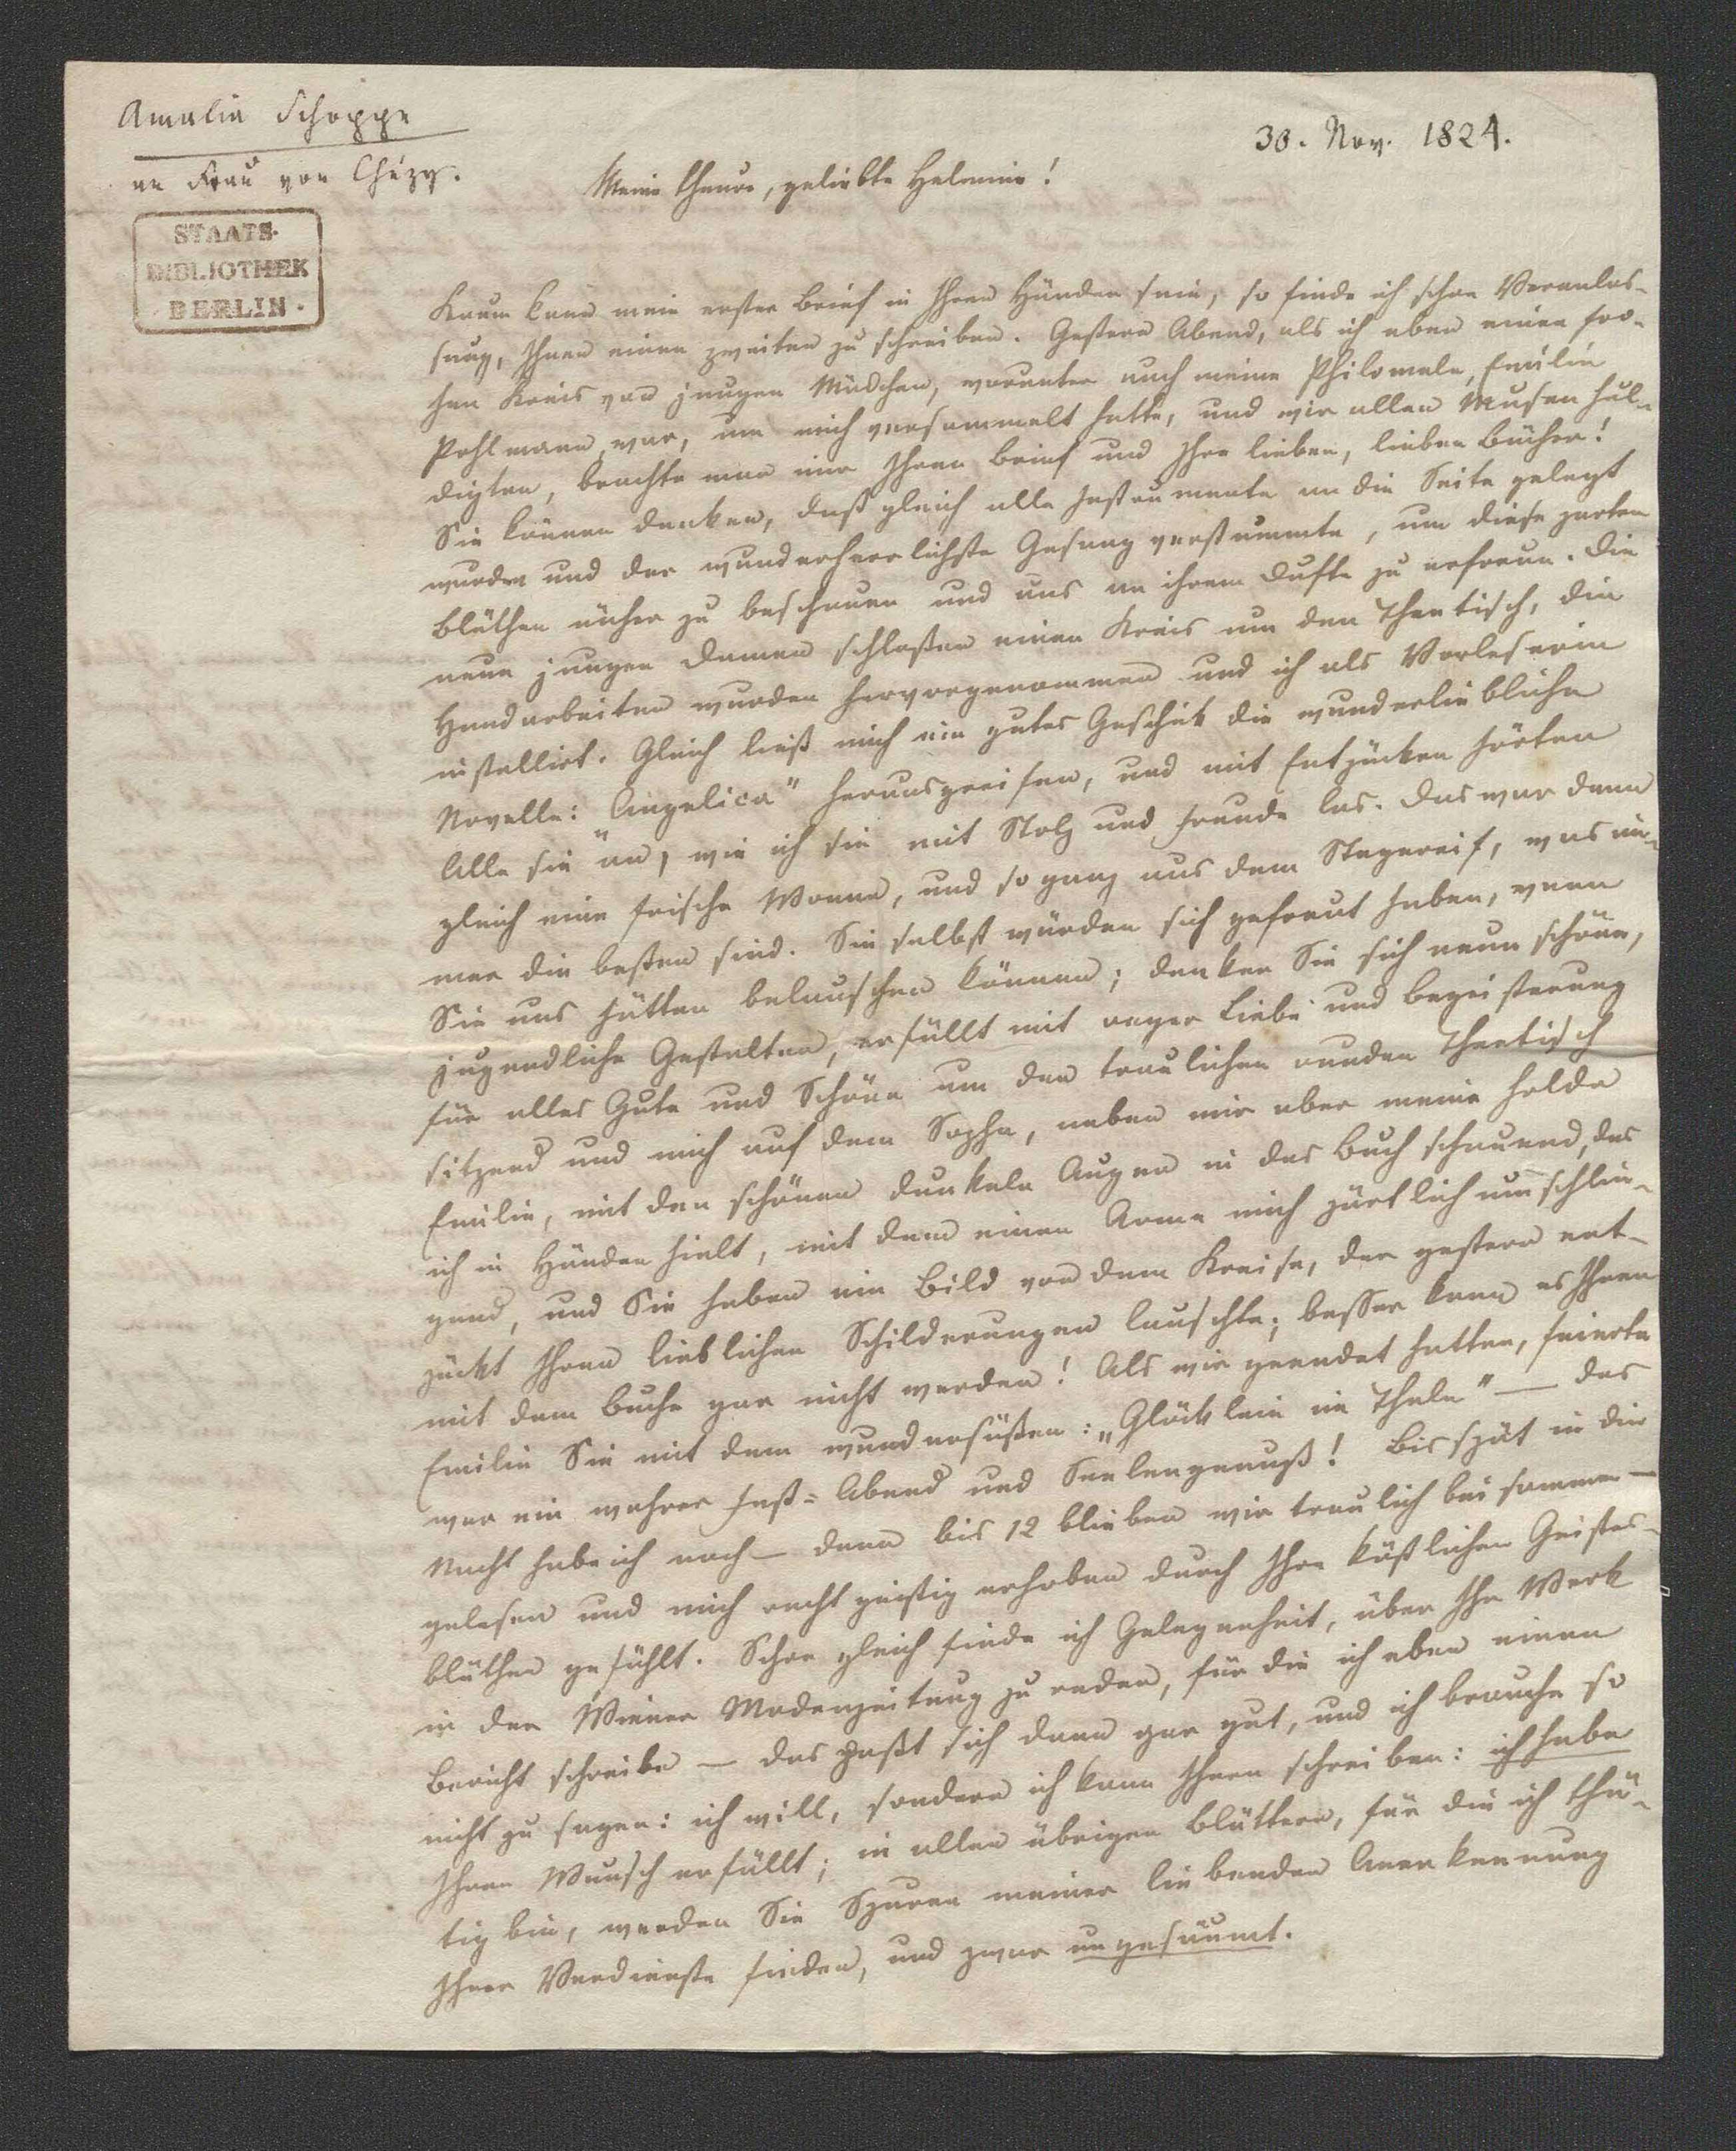 Amalia Schoppe
an Frau von Chézy.
30. Nov. 1824.
STAATS-
BIBLIOTHEK
BERLIN.
Meine theure, geliebte Helmine!
Kaum kann mein erster Brief in Ihren Händen sein, so finde ich schon Veranlas-
sung, Ihnen einen zweiten zu schreiben. Gestern Abend, als ich eben einen fro-
hen Kreis von jungen Mädchen, worunter auch meine Philomele, Emilie
Pohlmann, war, um mich versammelt hatte, und wir allen Musen hul-
digten, brachte man mir Ihren Brief und Ihre lieben, lieben Bücher!
Sie können denken, daß gleich alle Instrumente an die Seite gelegt
wurden und der wunderherrlichste Gesang verstummte, um diese zarten
Blüthen näher zu beschauen und uns an ihrem Dufte zu erfreun. Die
neun jungen Damen schloßen einen Kreis um den Theetisch, die
Handarbeiten wurden hervorgenommen und ich als Vorleserin
installirt. Gleich ließ mich ein gutes Geschick die wunderliebliche
Novelle: „Angelica" herausgreifen, und mit Entzücken hörten
Alle sie an, wie ich sie mit Stolz und Freude las. Das war denn
gleich eine frische Wonne, und so ganz aus dem Stegereif, was im-
mer die besten sind. Sie selbst würden sich gefreut haben, wenn
Sie uns hätten belauschen können; denken Sie sich neun schöne,
jugendliche Gestalten, erfüllt mit reger Liebe und Begeisterung
für alles Gute und Schöne um den traulichen runden Theetisch
sitzend und mich auf dem Sopha, neben mir aber meine holde
Emilie, mit den schönen dunkeln Augen in das Buch schauend, das
ich in Händen hielt, mit dem einen Arme mich zärtlich umschlin-
gend, und Sie haben ein Bild von dem Kreise, der gestern ent-
zückt Ihren lieblichen Schilderungen lauschte; besser kann es Ihnen
mit dem Buche gar nicht werden! Als wir geendet hatten, feierte
Emilie Sie mit dem wundersüßen: „Glöcklein im Thale" — das
war ein wahrer Fest-Abend und Seelengenuß! Bis spät in die
Nacht habe ich noch — denn bis 12 blieben wir traulich beisammen —
gelesen und mich recht geistig erhoben durch Ihre köstlichen Geistes-
blüthen gefühlt. Schon gleich finde ich Gelegenheit, über Ihr Werk
in der Wiener Modenzeitung zu reden, für die ich eben einen
Bericht schreibe — das paßt sich denn gar gut, und ich brauche so
nicht zu sagen: ich will, sondern ich kann Ihnen schreiben: ich habe
Ihren Wunsch erfüllt; in allen übrigen Blättern, für die ich thä-
tig bin, werden Sie Spuren meiner liebenden Anerkennung
Ihrer Verdienste finden, und zwar ungesäumt.